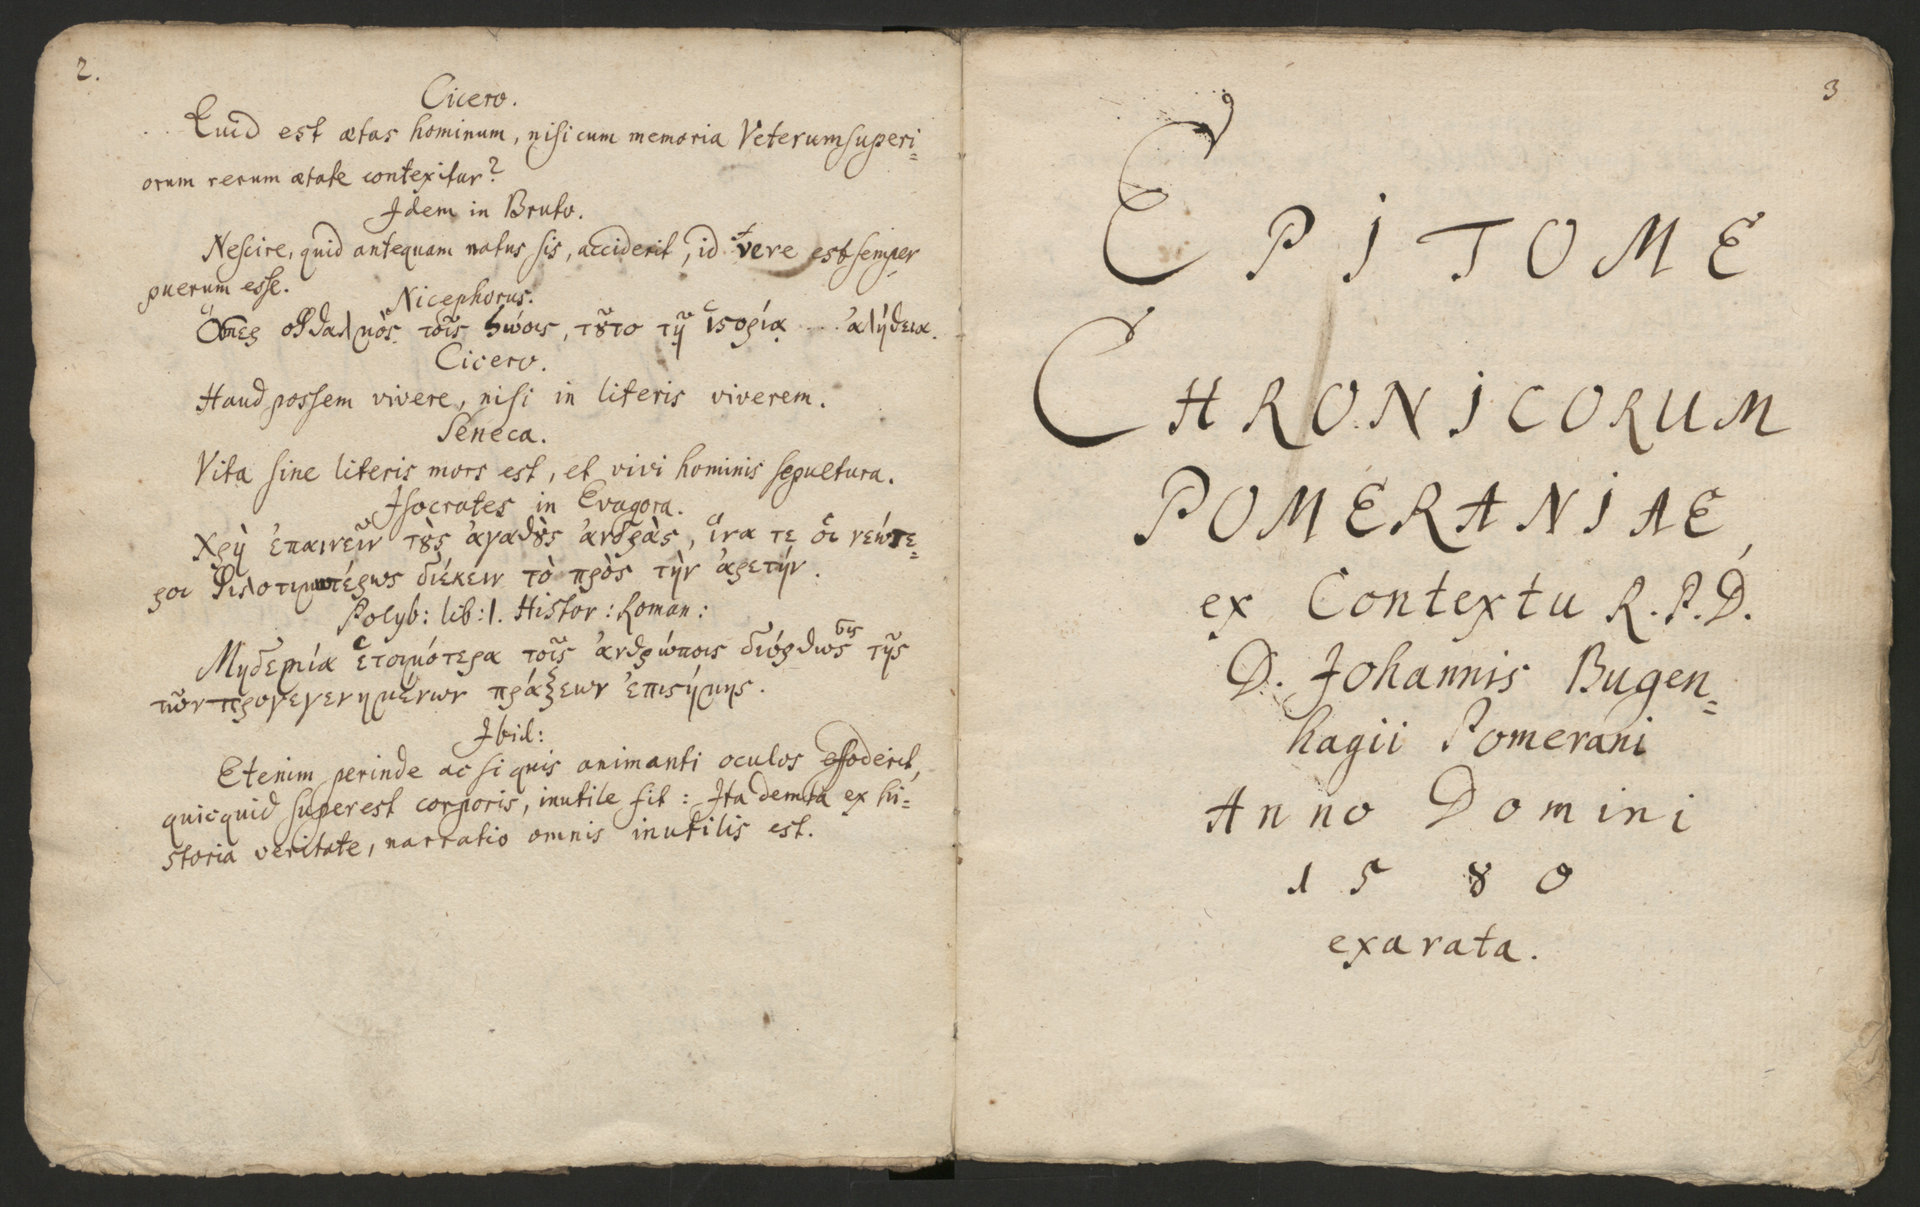 2.
Cicero.
Quid est ætas hominum, nisi cum memoria Veterum superi=
orum rerum ætate contexitur?
Idem in Bruto.
Nescire, quid antequam natus sis, acciderit, id vere est semper
puerum esse.
Nicephorus.
Ὅπερ ὀφθαλμὸς τοῖς ζώοις, τȣ͂το τῇ ἱϛορίᾳ ἀλήθεια.
Cicero.
Haud possem vivere, nisi in literis viverem.
Seneca.
Vita sine literis mors est, et vivi hominis sepultura.
Isocrates in Evagora.
Χρὴ ἐπαινεῖν τȣ̀ς ἀγαθȣ̀ς ἀνδρὰς, ἵνα τε ὁι νεώτε=
ροι φιλοτιμωτέρως διέκειν τὸ πρὸς τὴν ἀρετήν.
Polyb: lib: 1. Histor: Roman:
Μηδεμία ἑτοιμότερα τοῖς ἀνθρώποις διόρθωσις τῆς
τῶν προγεγενημένων πράξεων ἐπιϛήμης.
Ibid:
Etenim perinde ac si quis animanti oculos effoderit,
quicquid superest corporis, inutile fit: Ita demta ex hi=
storia veritate, narratio omnis inutilis est.
3
EPITOME
CHRONICORUM
POMERANIAE,
ex Contextu R. P. D.
D. Johannis Bugen=
hagii Pomerani
Anno Domini
1580
exarata.